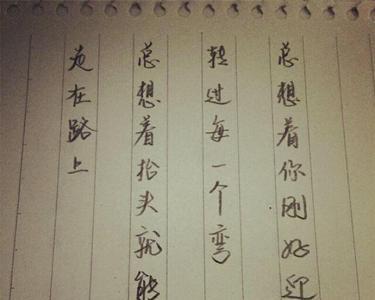 走在路上
总想着抬头就能
转过每一个弯
总想着你刚好迎